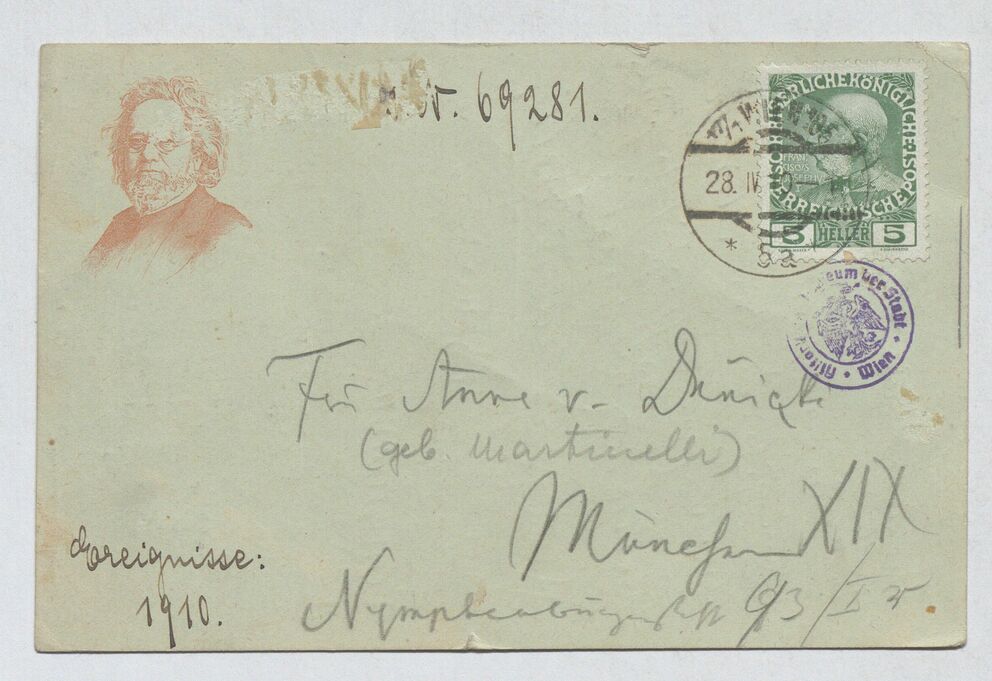 J.N. 69281.
KAISERLICHE KÖNIGLICHE
ÖSTERREICHISCHE POST
FRAN
CISCVS
IOSEPHVS
5 HELLER 5
WIEN
28. IV
* 5a
Museum der Stadt
• Wien •
Anna v.
(geb. Martinelli)
München XIX
Nymphenburgerstr 93/I r.
Ereignisse:
1910.